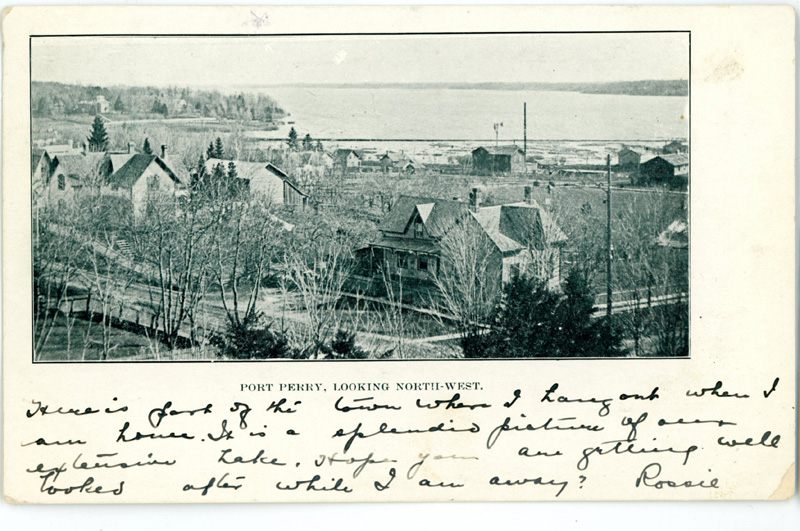 PORT PERRY, LOOKING NORTH-WEST.
Here is part of the town where I hang out when I
am home. It is a splendid picture of our
extensive Lake. Hope you are getting well
looked after while I am away? Rossie